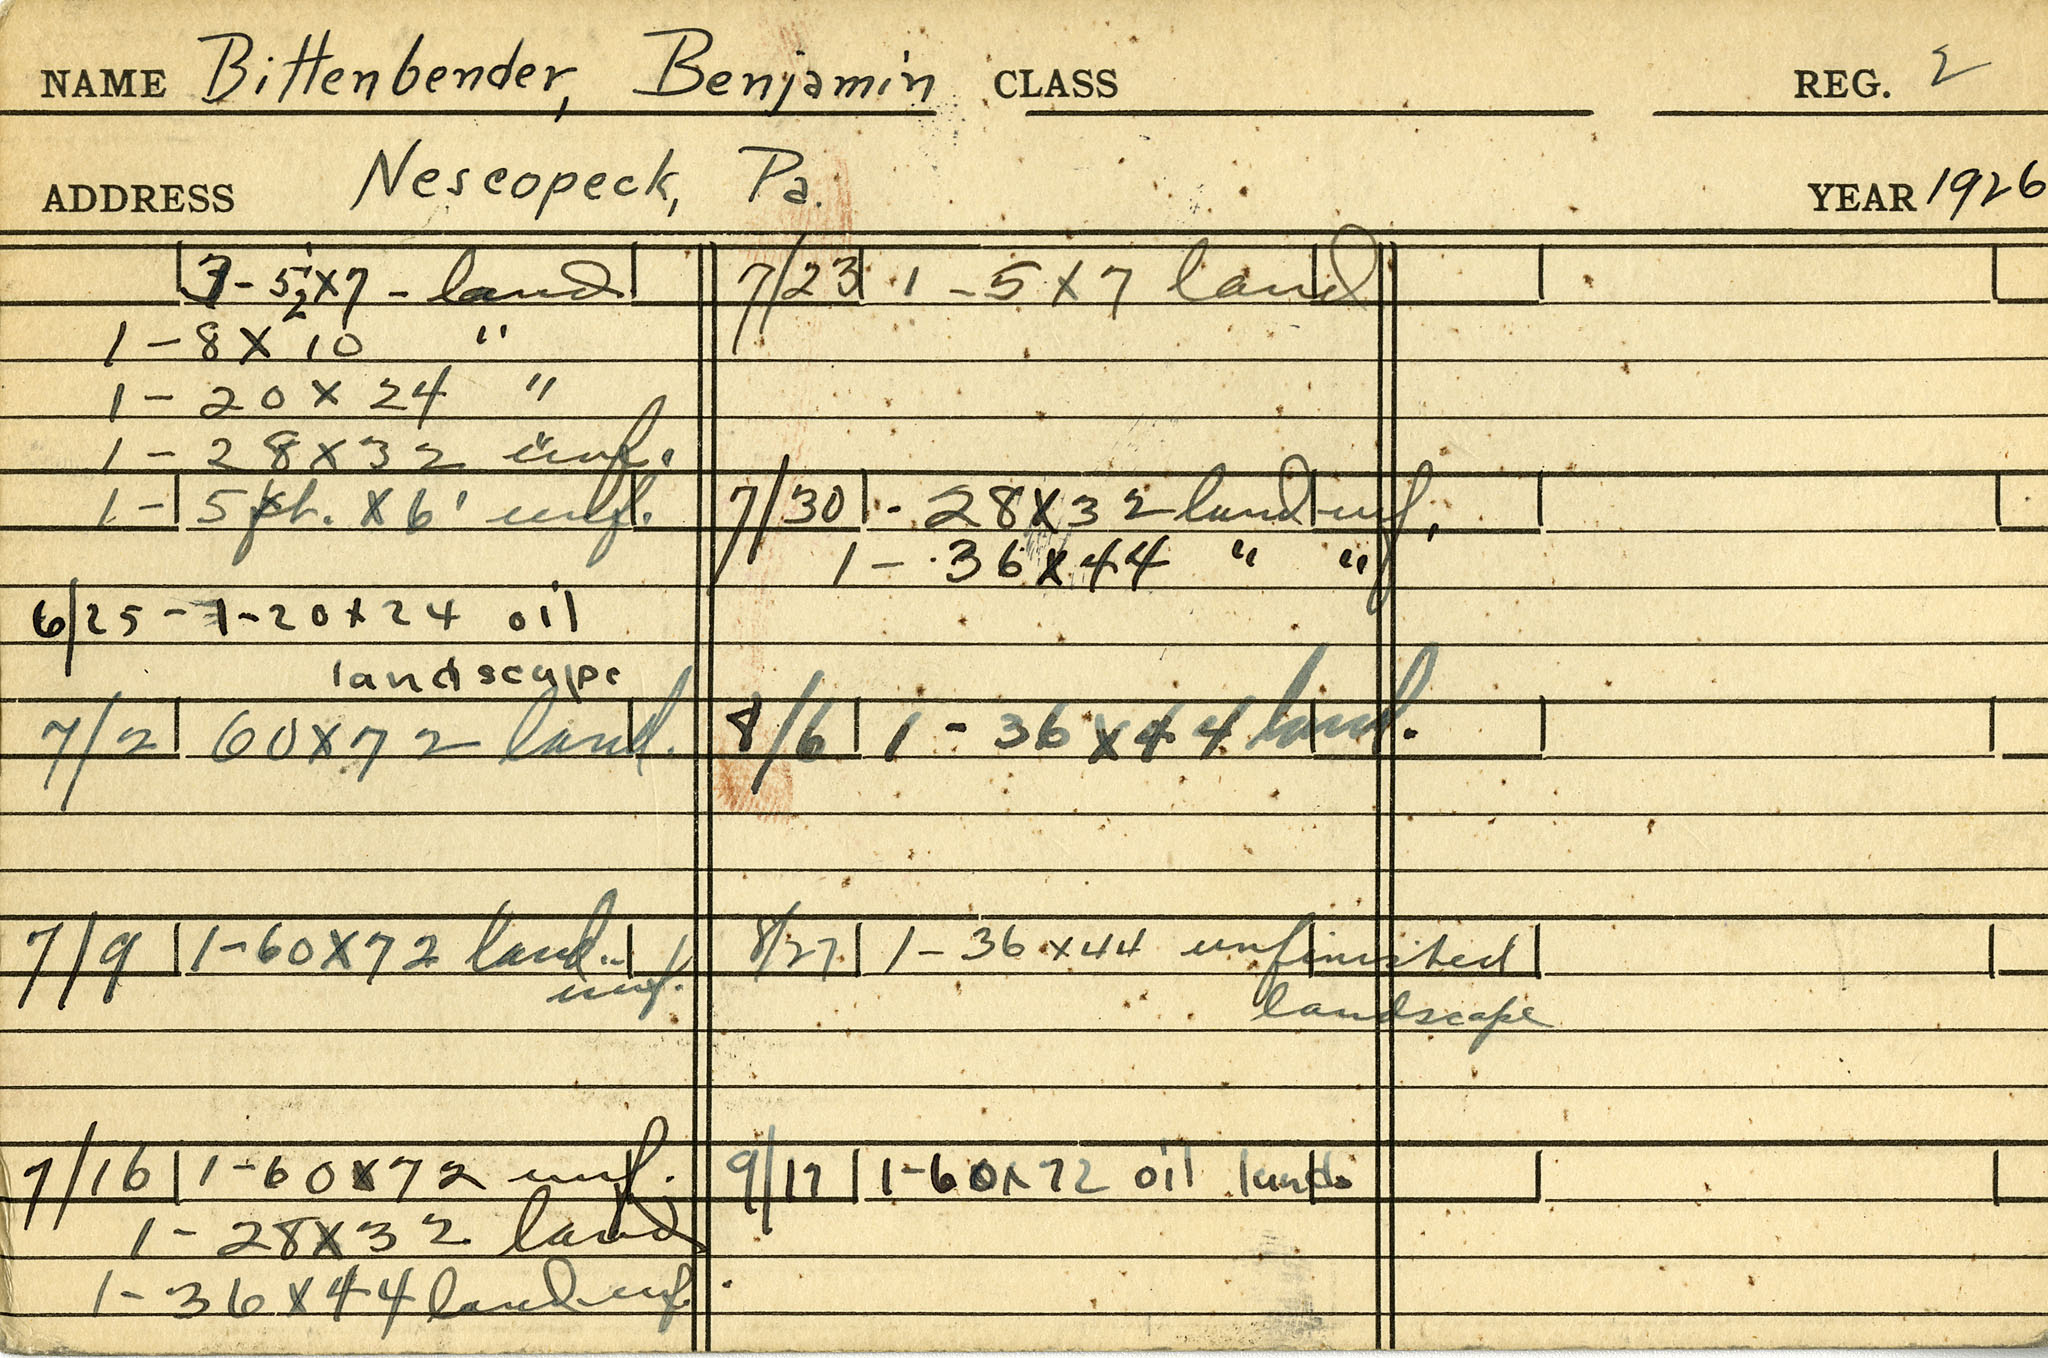 NAME Bittenbender, Benjamin CLASS REG. 2
ADDRESS Nescopeck, Pa. YEAR 1926
- 5½x7 - land
1 - 8 x 10 "
1 - 20 x 24 "
1 - 28 x 32 unf.
1 - 5 x 6' unf.
6/25 - 1 - 20 x 24 oil
landscape
7/2 60 x 72 land.
7/9 1 - 60 x 72 land.
unf.
7/16 1 - 60 x 72 unf.
1 - 28 x 32 land
1 - 36 x 44 land unf.
7/23 1 - 5 x 7 land
7/30 1 - 28 x 32 land unf.
1 - 36 x 44 " "
8/6 1 - 36 x 44 land.
8/27 1 - 36 x 44 unfinished
landscape
9/17 1 - 60 x 72 oil land.